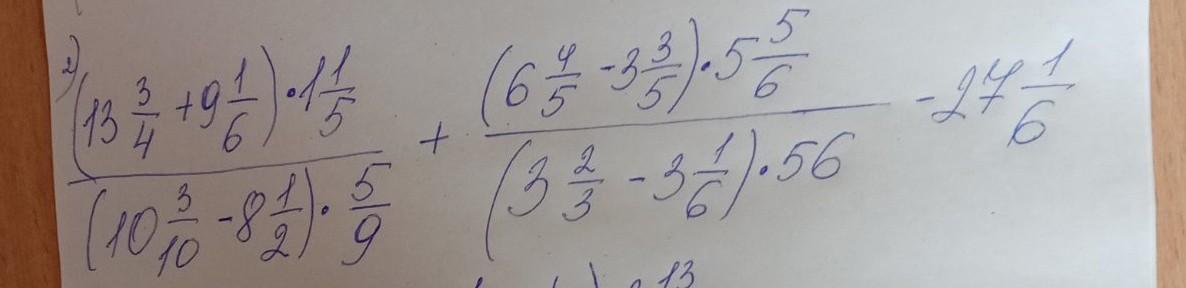 2) (13 3/4 + 9 1/6) · 1 1/5 / (10 3/10 - 8 1/2) · 5/9 + (6 4/5 - 3 3/5) · 5 5/6 / (3 2/3 - 3 1/6) · 56 - 27 1/6
13